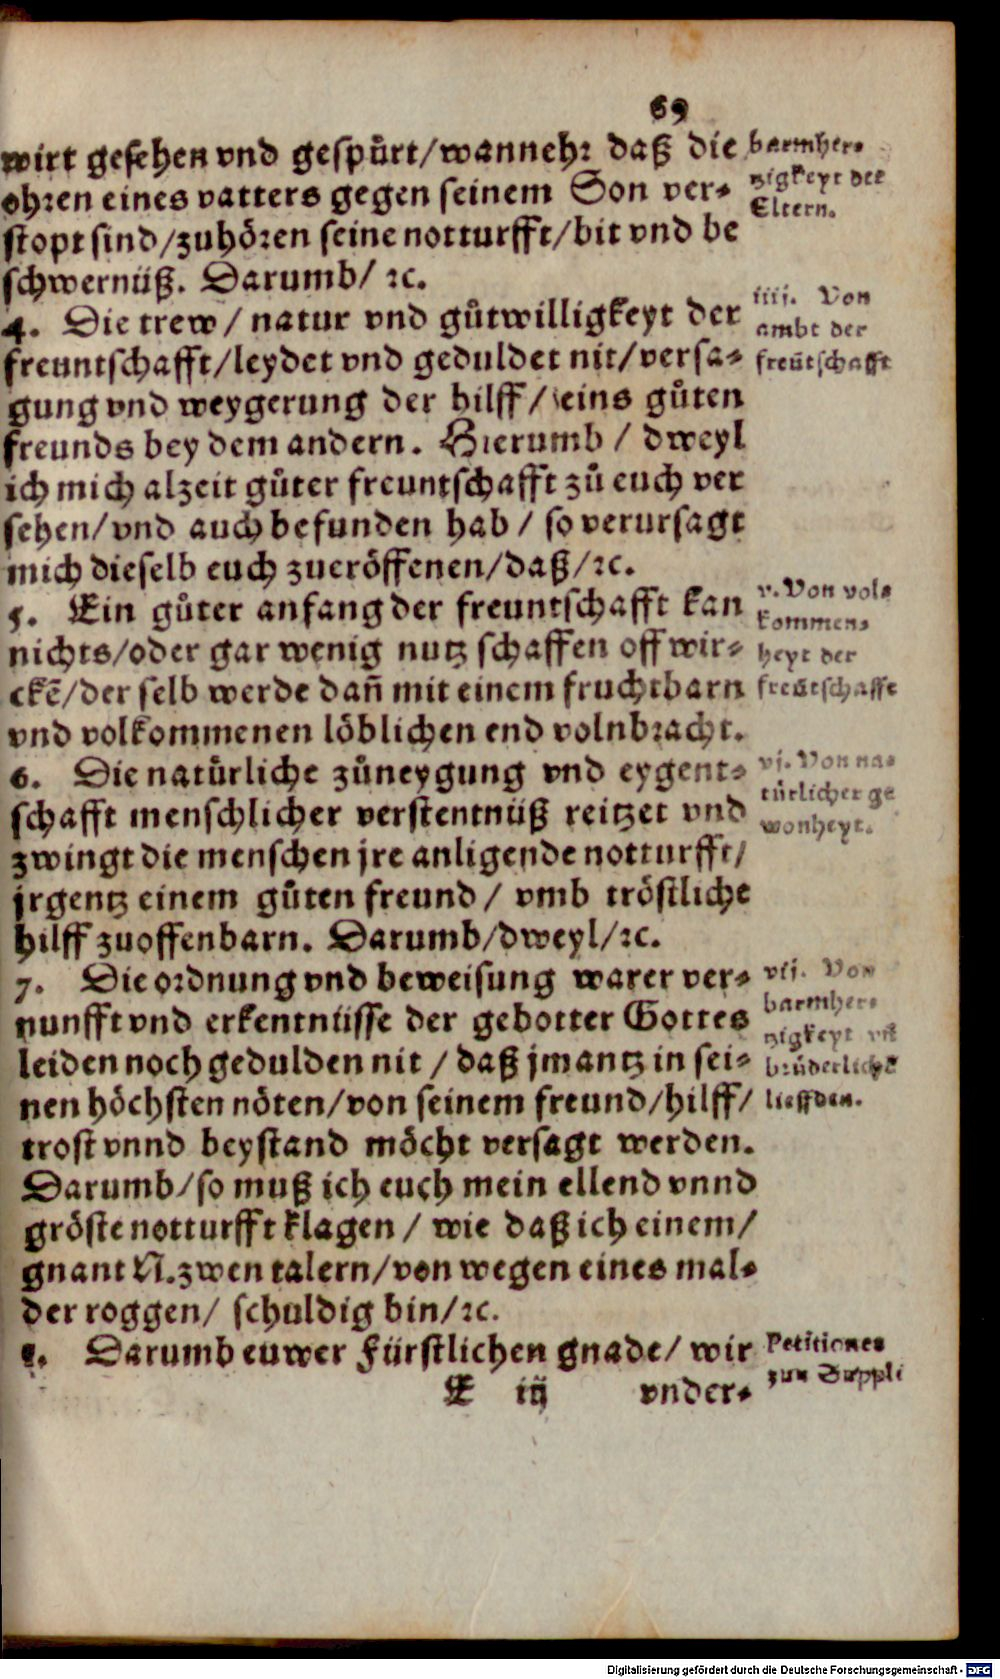 69
wirt gesehen vnd gespůrt/wannehr daß die
ohren eines vatters gegen seinem Son ver-
stopt sind/zuhören seine notturfft/bit vnd be
schwernüß. Darumb/ ꝛc.
barmher-
tzigkeyt der
Eltern.
4. Die trew/ natur vnd gůtwilligkeyt der
freuntschafft/leydet vnd geduldet nit/versa-
gung vnd weygerung der hilff/ eins gůten
freunds bey dem andern. Hierumb / dweyl
ich mich alzeit gůter freuntschafft zů euch ver
sehen/vnd auch befunden hab / so verursagt
mich dieselb euch zueröffenen/daß/ꝛc.
iiij. Von
ambt der
freũtschafft
5. Ein gůter anfang der freuntschafft kan
nichts/oder gar wenig nutz schaffen off wir-
ckẽ/der selb werde dañ mit einem fruchtbarn
vnd volkommenen löblichen end volnbracht.
v. Von vol-
kommen-
heyt der
freũtschafft
6. Die natůrliche zůneygung vnd eygent-
schafft menschlicher verstentnüß reitzet vnd
zwingt die menschen jre anligende notturfft/
jrgentz einem gůten freund / vmb tröstliche
hilff zuoffenbarn. Darumb/dweyl/ꝛc.
vj. Von na-
türlicher ge
wonheyt.
7. Die ordnung vnd beweisung warer ver-
nunfft vnd erkentnüsse der gebotter Gottes
leiden noch gedulden nit / daß jmantz in sei-
nen höchsten nöten/von seinem freund/hilff/
trost vnnd beystand möcht versagt werden.
Darumb/so muß ich euch mein ellend vnnd
gröste notturfft klagen / wie daß ich einem/
gnant N.zwen talern/von wegen eines mal-
der roggen/ schuldig bin/ꝛc.
vij. Von
barmher-
tzigkeyt vñ
brůderlichẽ
lieffden.
8. Darumb euwer Fürstlichen gnade/ wir
Petitiones
zun Suppli
E iij vnder-
Digitalisierung gefördert durch die Deutsche Forschungsgemeinschaft - DFG